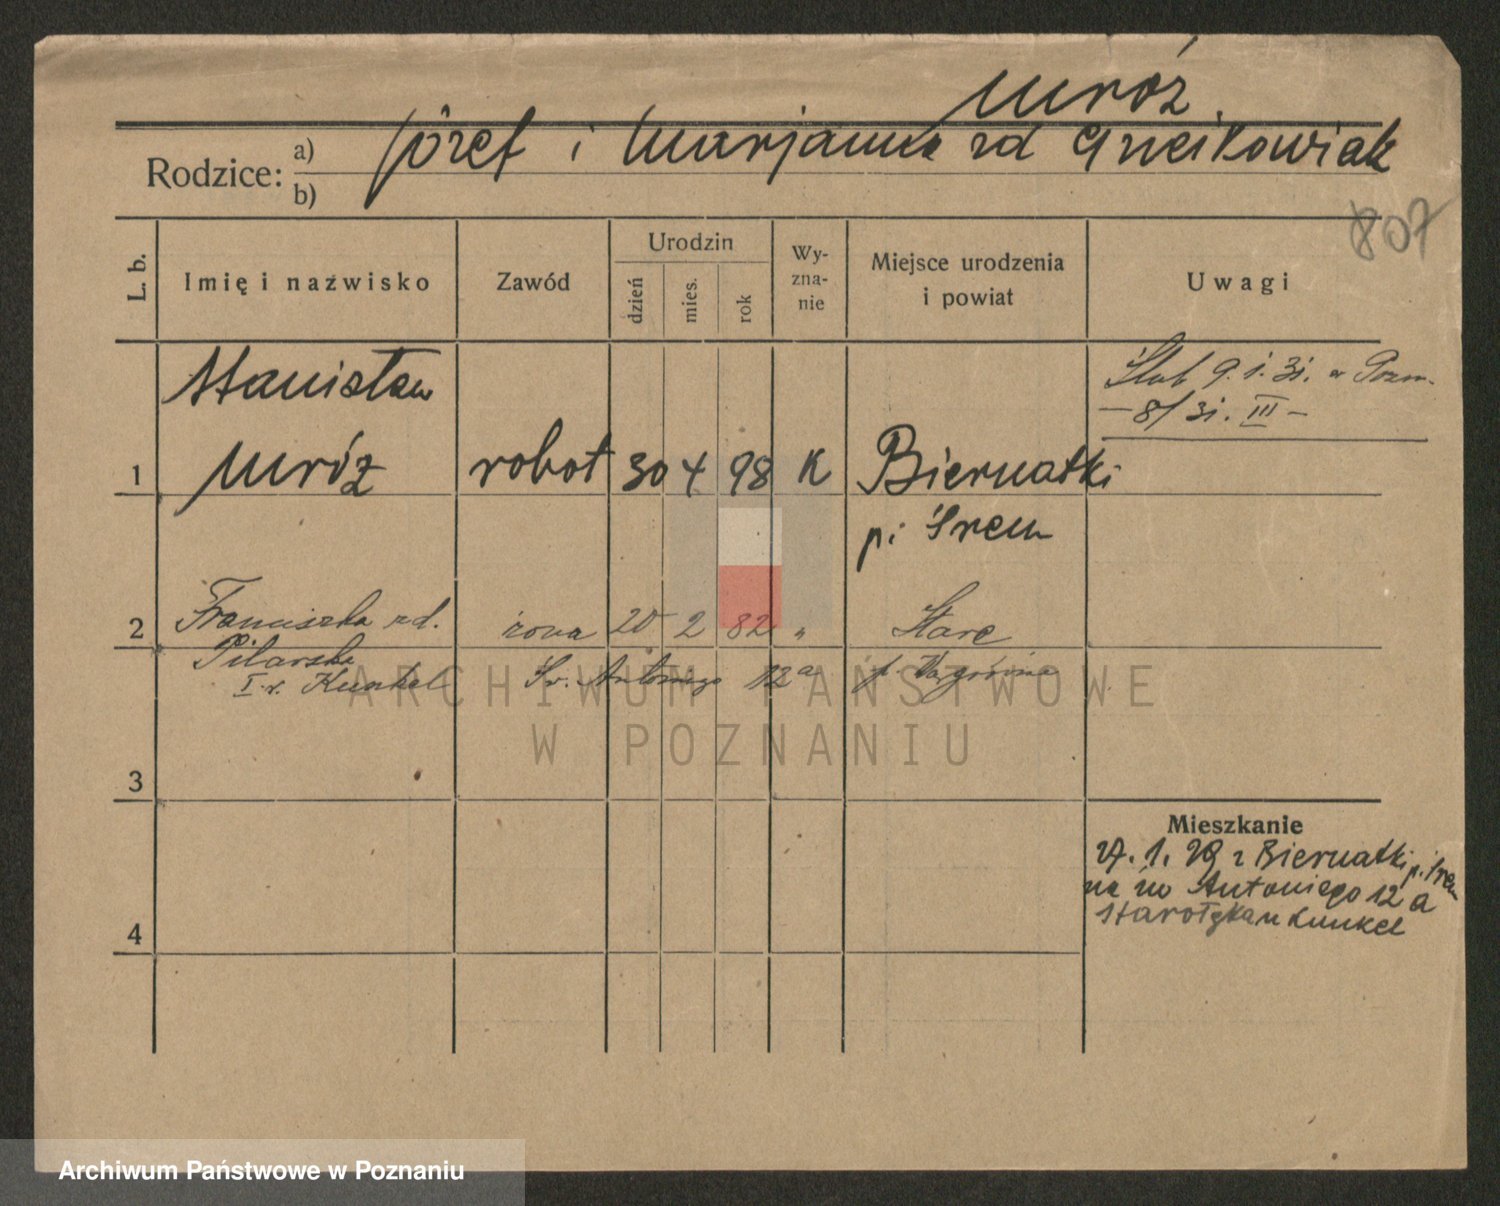 Mróz
Rodzice: a) b) Józef i Marjanna rd
807
L. b. Imię i nazwisko Zawód Urodzin dzień mies. rok Wy-zna-nie Miejsce urodzenia i powiat Uwagi
Ślub 9.1.31. w Pozn.
— 8/31. III —
Stanisław
1 Mróz robot 30 4 98 K Biernatki
p. Śrem
2 Franciszka rd. żona 20 2 82 " Stare
Pilarska Św. Antoniego 12a p.
I v. Kunkel
ARCHIWUM PAŃSTWOWE
W POZNANIU
3
Mieszkanie
27. 1. 29 z Biernatki p. Śrem
na św Antoniego 12 a
Starołęka u Kunkel
4
Archiwum Państwowe w Poznaniu